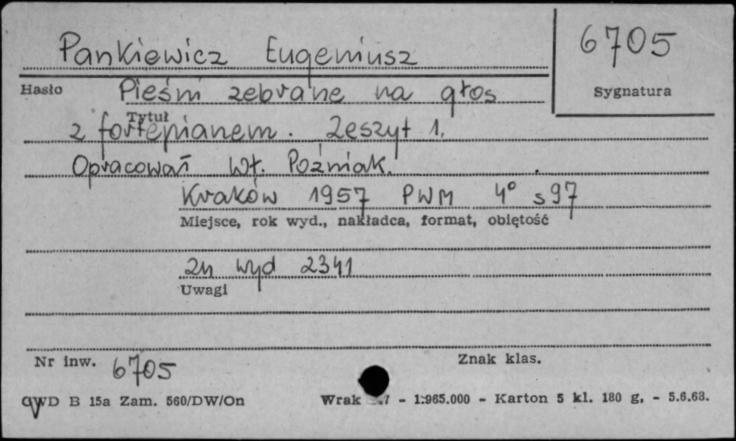 Pankiewicz Eugeniusz
6705
Hasło
Pieśni zebrane na głos
Sygnatura
Tytuł
z fortepianem. Zeszyt 1.
Opracował Wł. Poźniak.
Kraków 1957 PWM 4° s 97
Miejsce, rok wyd., nakładca, format, objętość
2n wyd 2341
Uwagi
Nr inw. 6705
Znak klas.
CWD B 15a Zam. 560/DW/On
Wrak - 1:965.000 - Karton 5 kl. 180 g. - 5.6.63.